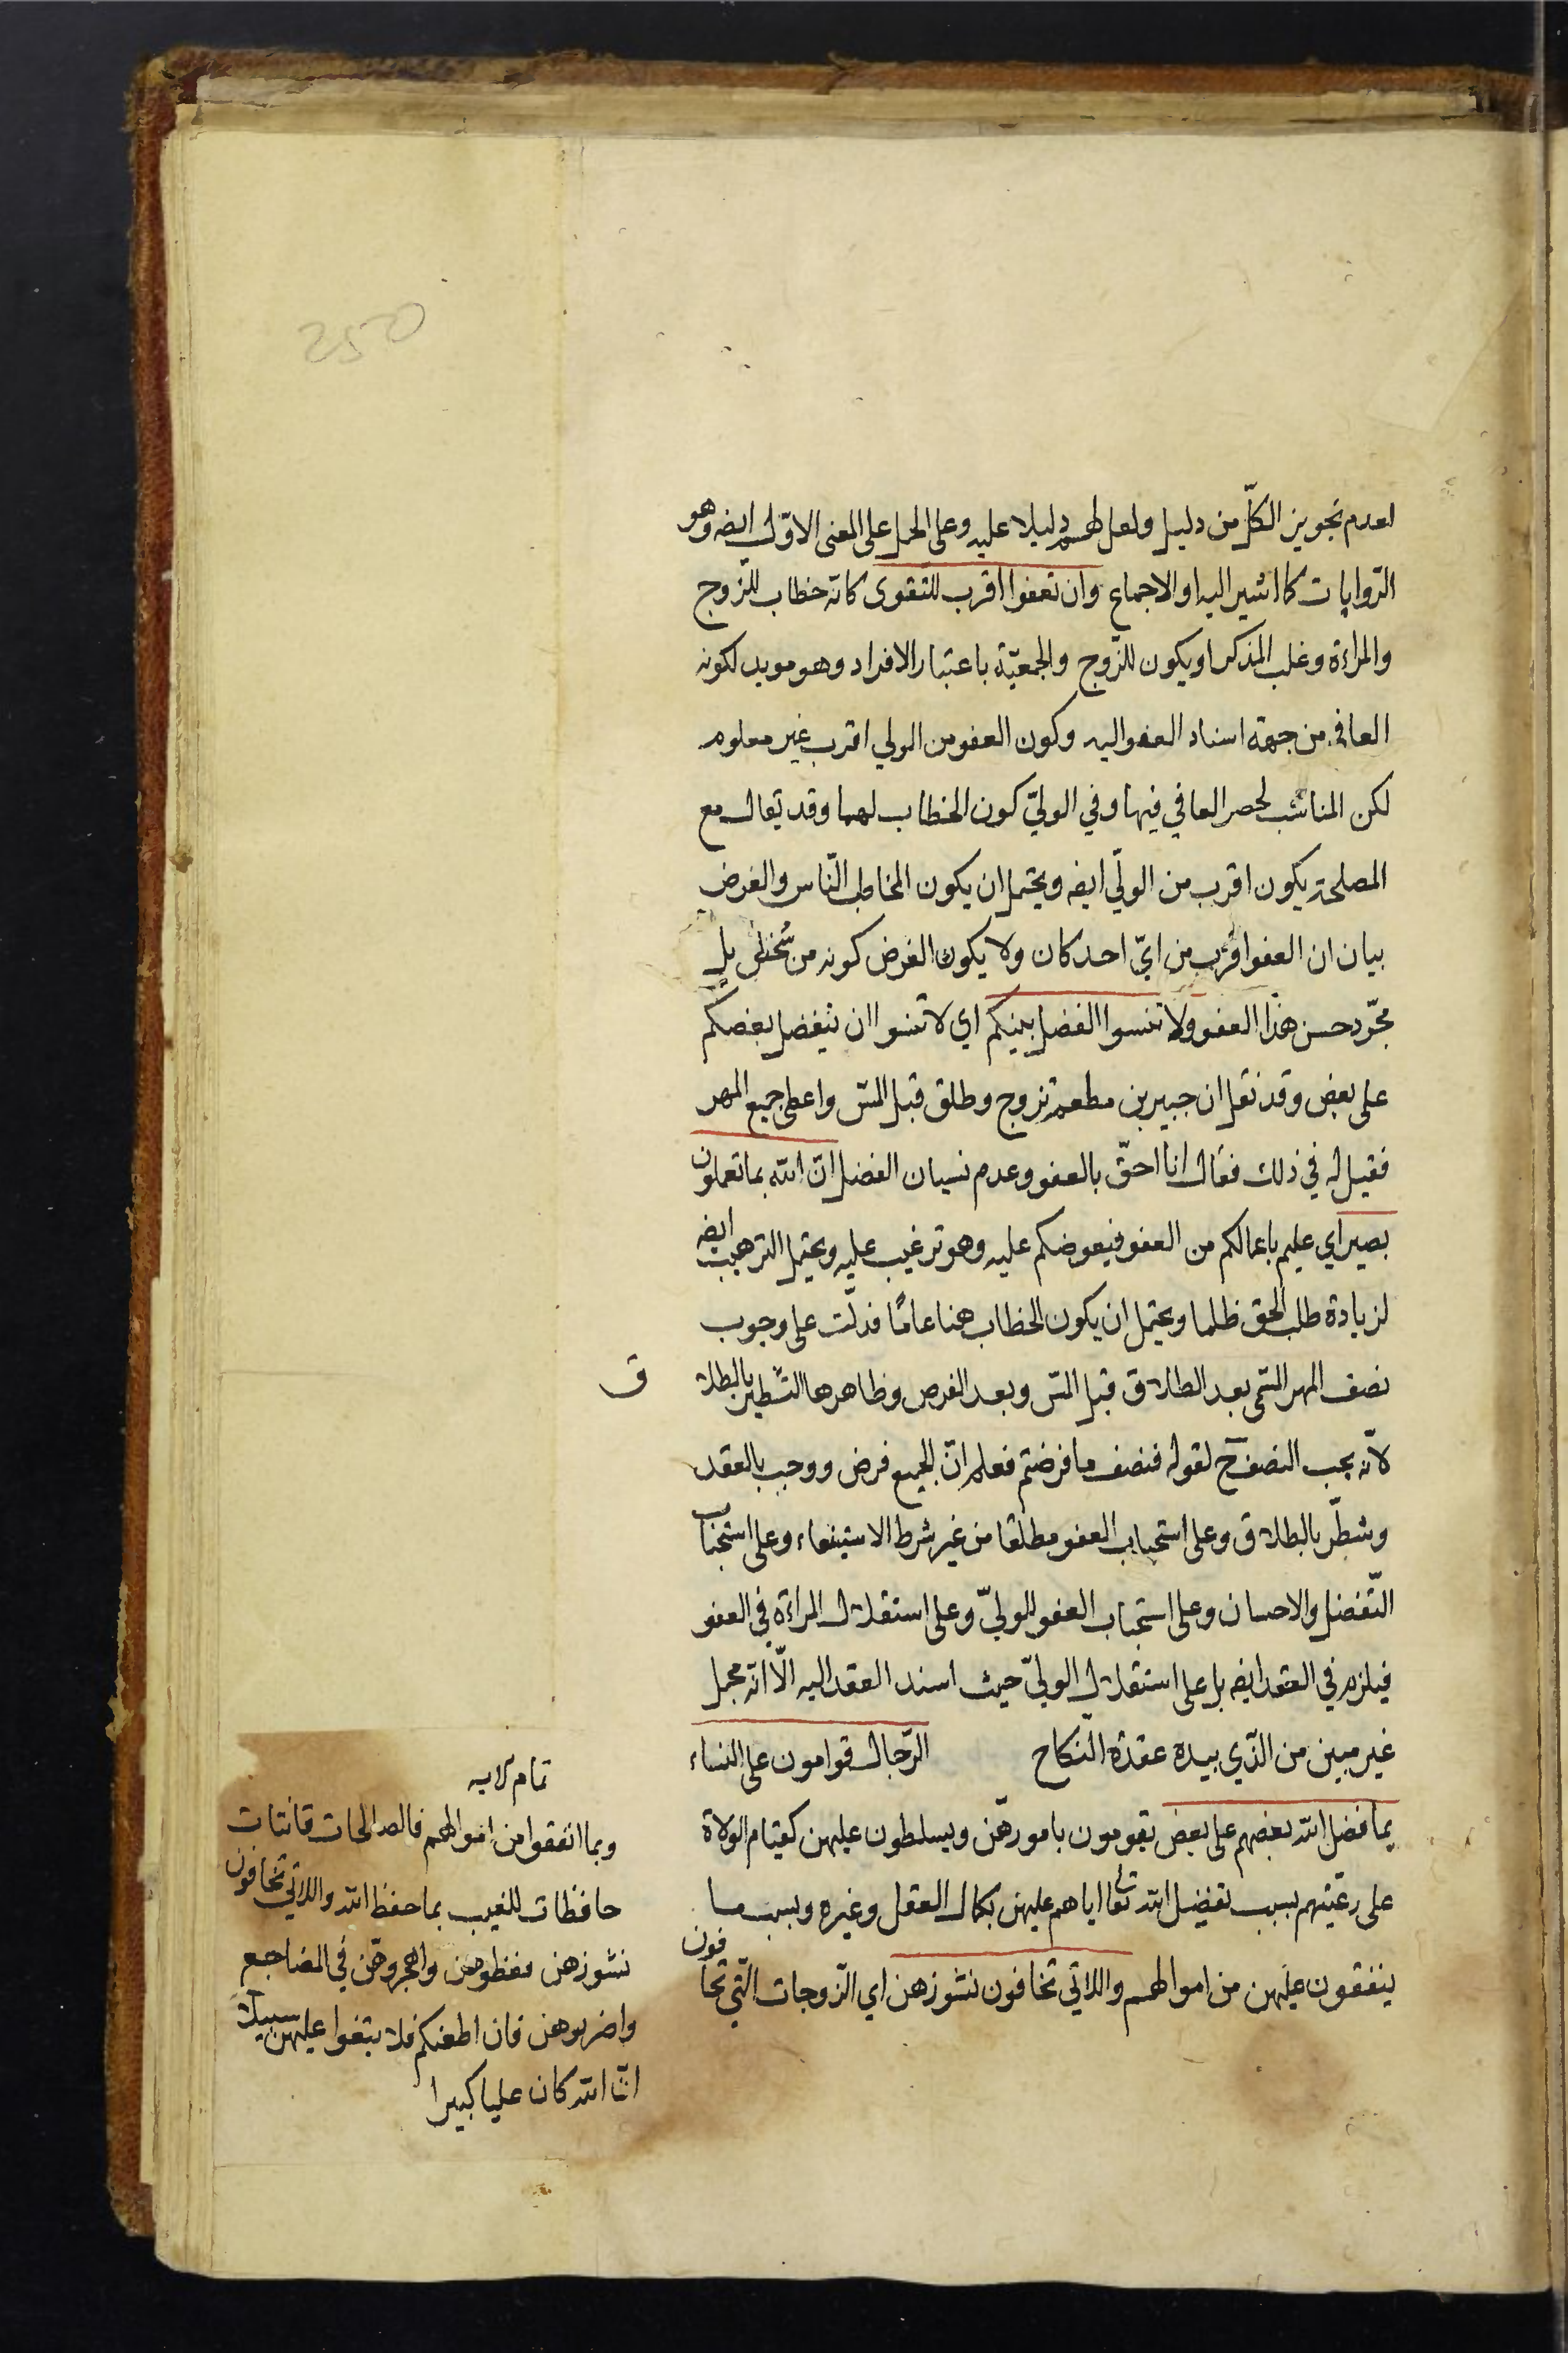 250
لعدم تجويز الكلّ من دليل ولعل لهم دليلا عليه وعلى الحمل على المعنى الاوّل ايضه وهو
الرّوايات كما اشير اليه او الاجماع وان تعفوا اقرب للتقوى كانّه خطاب للزّوج
والمراءة وغلب المذكر او يكون للزّوج والجمعيّة باعتبار الافراد وهو مويد لكونه
العافي من جهة اسناد العفو اليه وكون العفو من الولي اقرب غير معلوم
لكن المناسب لحصر العافي فيها وفي الوليّ كون الخطاب لهما وقد يقال مع
المصلحة يكون اقرب من الوليّ ايضه ويحتمل ان يكون المخاطب النّاس والغرض
بيان ان العفو اقرب من ايّ احد كان ولا يكون الغرض كونه من شخص بل
مجّرد حسن هذا العفو ولا تنسوا الفضل بينكم اي لا تنسوا ان يتفضل بعضكم
على بعض وقد نقل ان جبير بن مطعم تزوج وطلق قبل المسّ واعطى جميع المهر
فقيل له في ذلك فقال انا احقّ بالعفو وعدم نسيان الفضل انّ الله بما تعملون
بصير اي عليم باعمالكم من العفو فيعوضكم عليه وهو ترغيب عليه ويحتمل الترهيب ايضه
لزيادة طلب الحق ظلما ويحتمل ان يكون الخطاب هنا عامّا فدلّت على وجوب
نصف المهر المسّمى بعد الطلاق قبل المسّ وبعد الفرض وظاهرها التشطير بالطلا
ق
لانّه يجب النصف ح لقوله فنصف ما فرضتم فعلم انّ الجميع فرض ووجب بالعقد
وشطّر بالطلاق وعلى استحباب العفو مطلقا من غير شرط الاستيفاء وعلى استحباب
التّفضل والاحسان وعلى استحباب العفو للوليّ وعلى استقلال المراءة في العفو
فيلزم في العقد ايضه بل على استقلال الوليّ حيث اسند العقد اليه الّا انّه مجمل
غير مبين من الّذي بيده عقدة النّكاح الرّجال قوامون على النساء
بما فضل الله بعضهم على بعض يقومون بامورهّن ويسلطون عليهن كقيام الولاة
على رعّيتهم بسبب تفضيل الله تعا اياهم عليهن بكمال العقل وغيره وبسبب ما
ينفقون عليهن من اموالهم واللاتي تخافون نشوزهن اي الزّوجات الّتي تخافون
تمام الايه
وبما انفقوا من اموالهم فالصالحات قانتات
حافظات للغيب بما حفظ الله واللاتي تخافون
نشوزهن فعظوهن واهجروهّن في المضاجع
واضربوهن فان اطعنكم فلا تبتغوا عليهن سبيلا
انّ الله كان عليا كبيرا